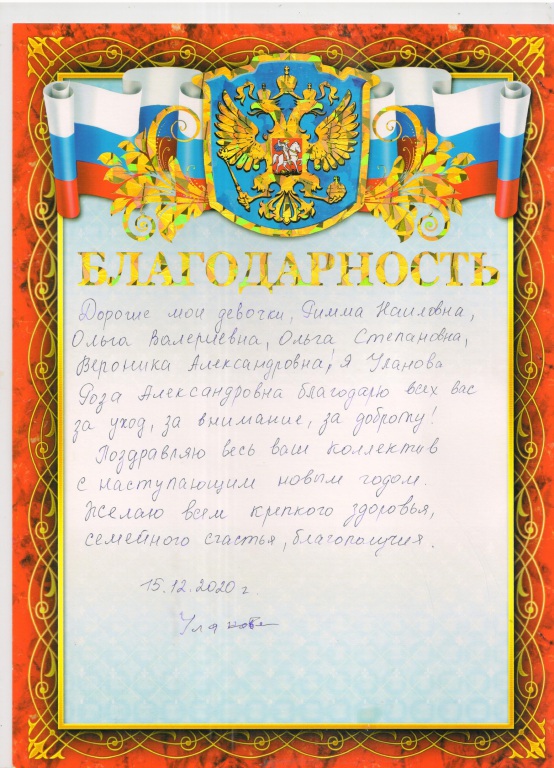 БЛАГОДАРНОСТЬ
Дорогие мои девочки, Римма Наиловна,
Ольга Валериевна, Ольга Степановна,
Вероника Александровна! Я Уланова
Роза Александровна благодарю всех вас
за уход, за внимание, за доброту!
Поздравляю весь ваш коллектив
с наступающим новым годом.
Желаю всем крепкого здоровья,
семейного счастья, благополучия.
15.12.2020 г.
Уланова